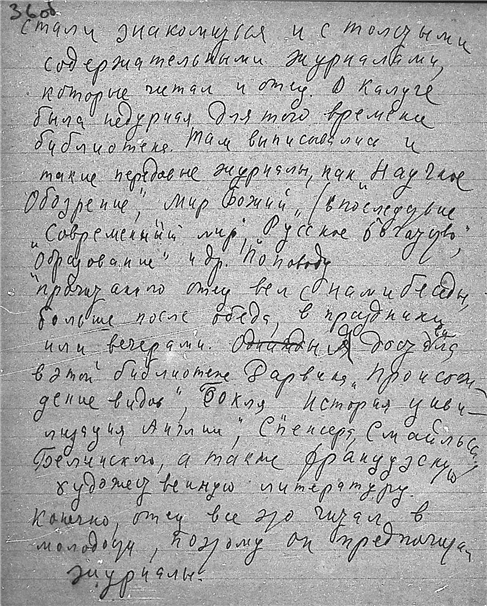 36об
стали знакомиться и с толстыми
содержательными журналами,
которые читал и отец. В Калуге
была недурная для того времени
библиотека. Там выписывались и
такие передовые журналы, как "Научное
Обозрение", "Мир Божий", (впоследствие
"Современный мир", "Русское богатство",
"Образование" и др. По поводу
прочитанного отец вел с нами беседы,
больше после обеда, в праздники
или вечерами. Однажды Я доставала
в этой библиотеке Дарвина "Происхож-
дение видов", Бокля "История циви-
лизация Англии", Спенсера, Смайльса,
Белинского, а также французскую
художественную литературу.
Конечно, отец все это читал в
молодости, поэтому он предпочитал
журналы.